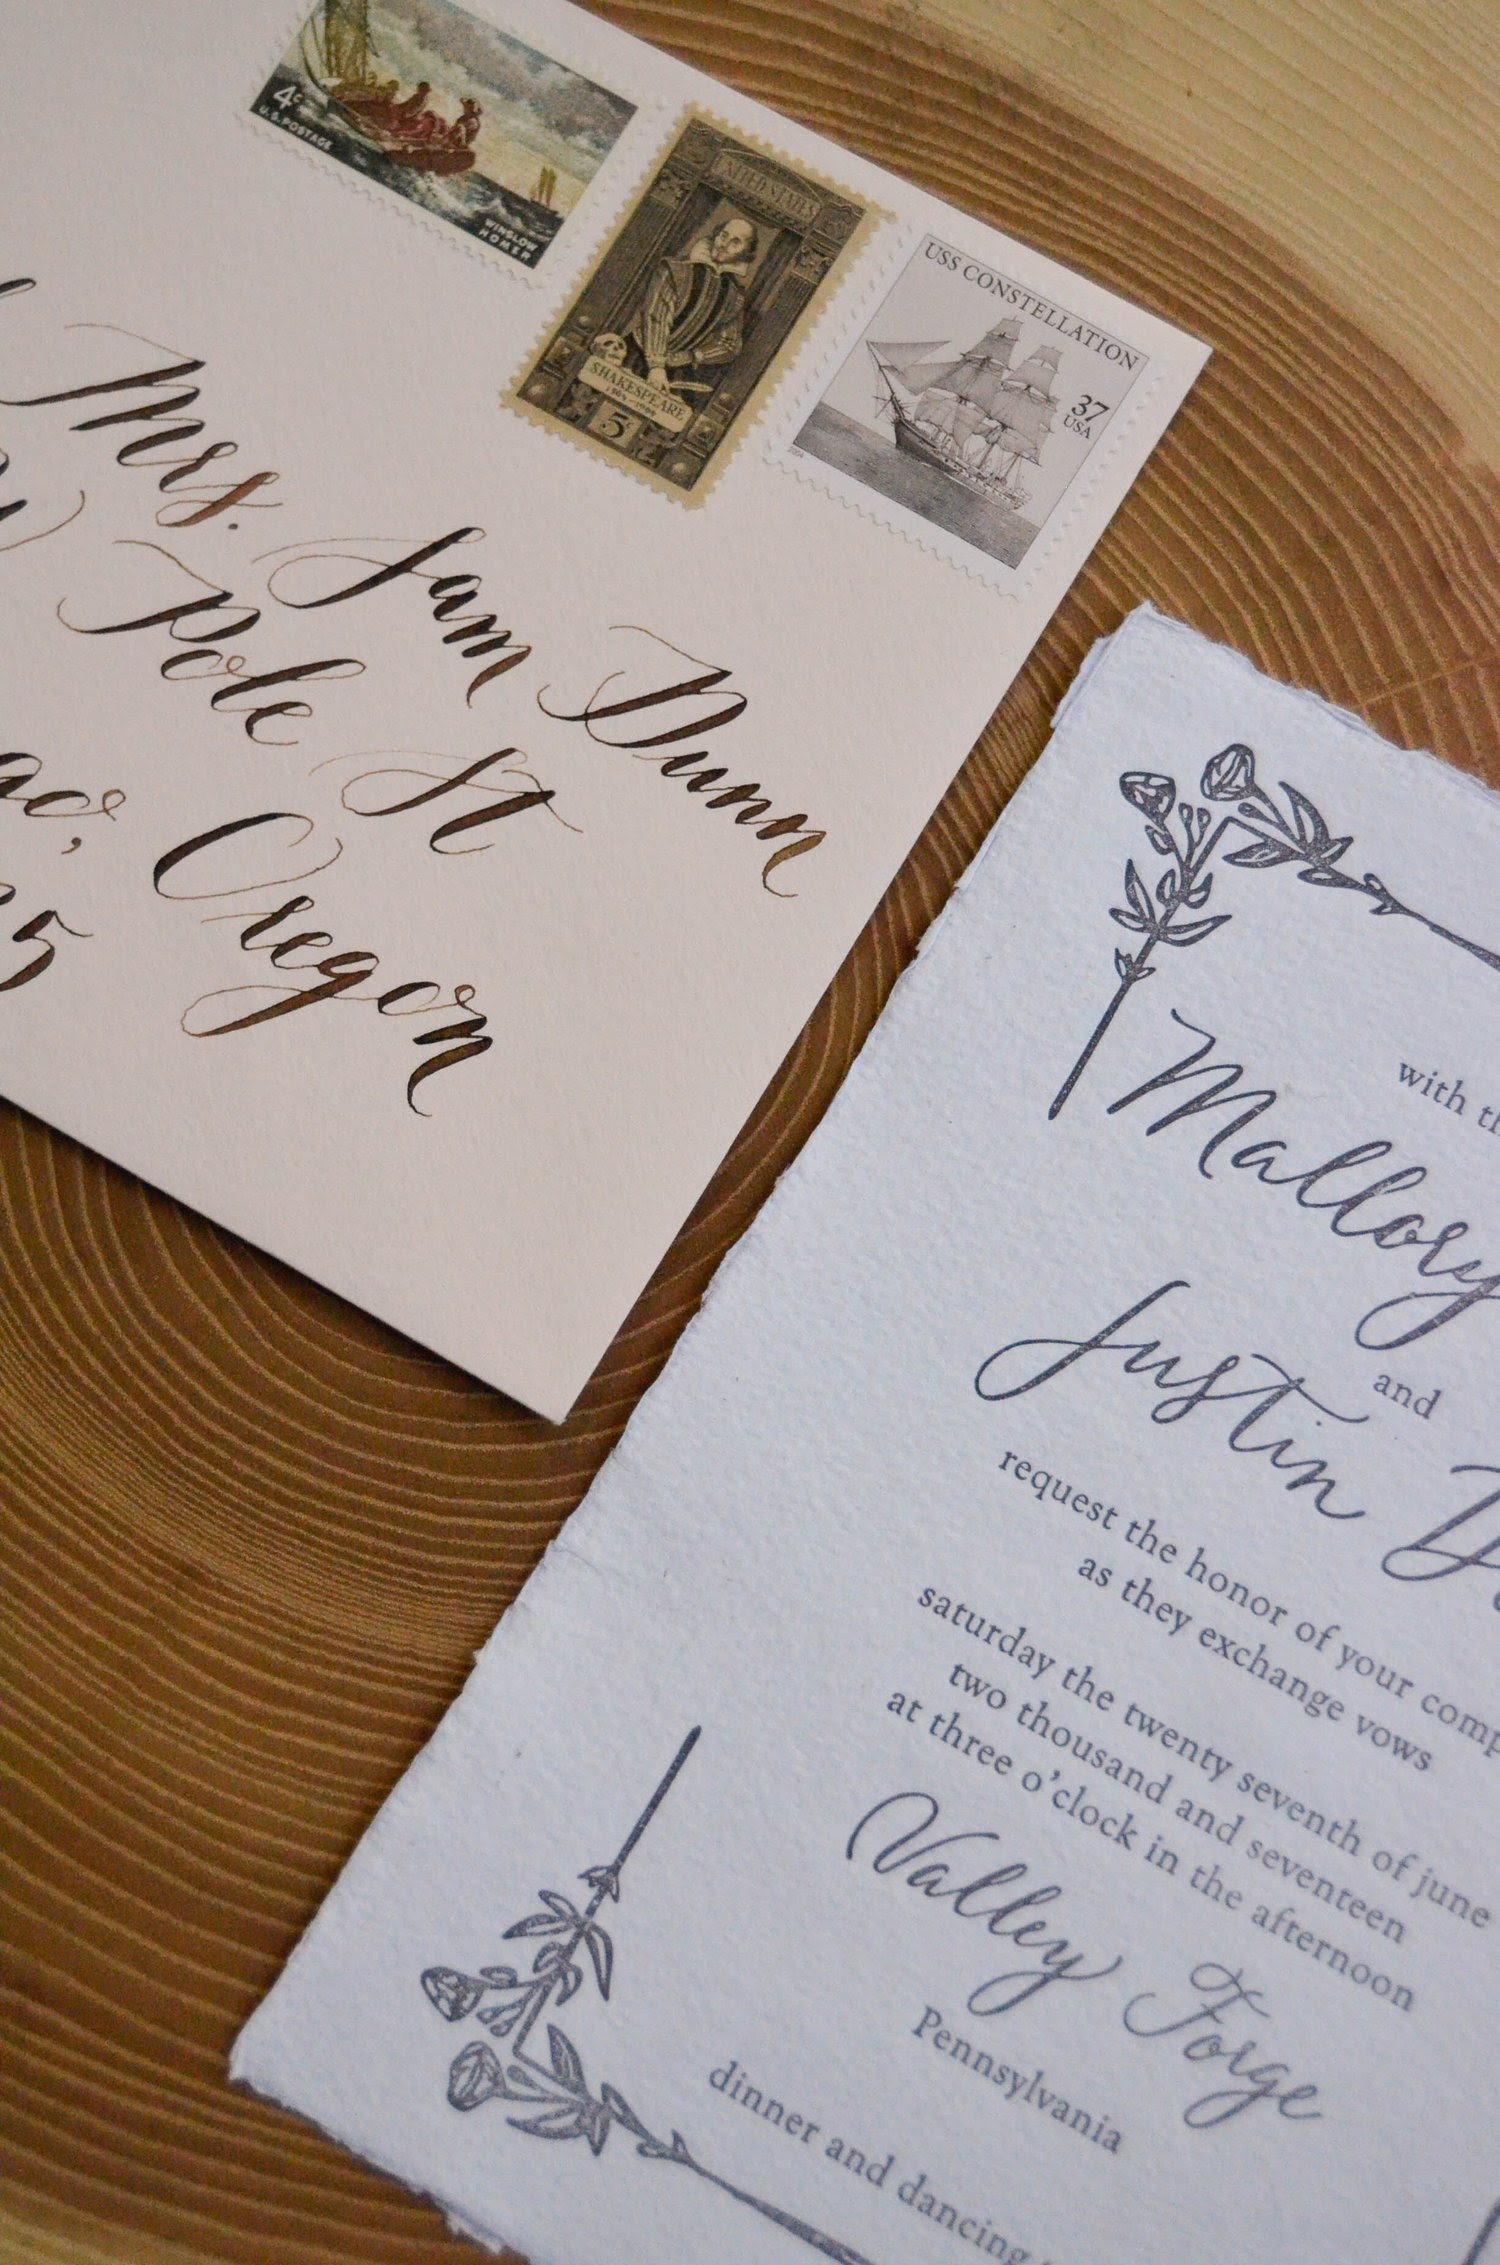 4c
U.S. POSTAGE
WINSLOW
HOMER
UNITED STATES
SHAKESPEARE
1564-1964
5¢
USS CONSTELLATION
37
USA
2004
Mrs. Sam Dunn
Pole St
Oregon
5
with
Mallory
and
Justin
request the honor of your
as they exchange vows
saturday the twenty seventh of june
two thousand and seventeen
at three o'clock in the afternoon
Valley Forge
Pennsylvania
dinner and dancing